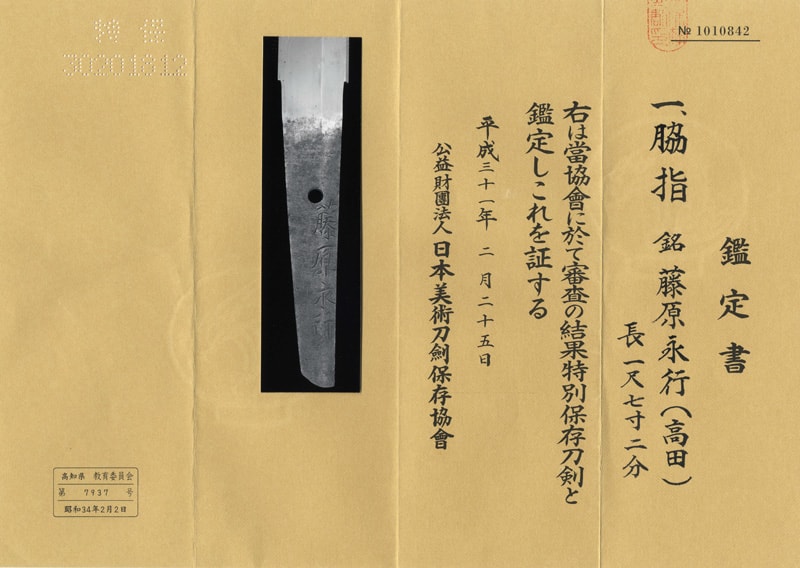 № 1010842
鑑定書
一、脇指 銘 藤原永行(高田)
長一尺七寸二分
右は當協會に於て審査の結果特別保存刀剣と
鑑定しこれを証する
平成三十一年二月二十五日
公益財團法人 日本美術刀劍保存協會
藤原永行
特保
30201812
高知県 教育委員会
第 7937 号
昭和34年2月2日